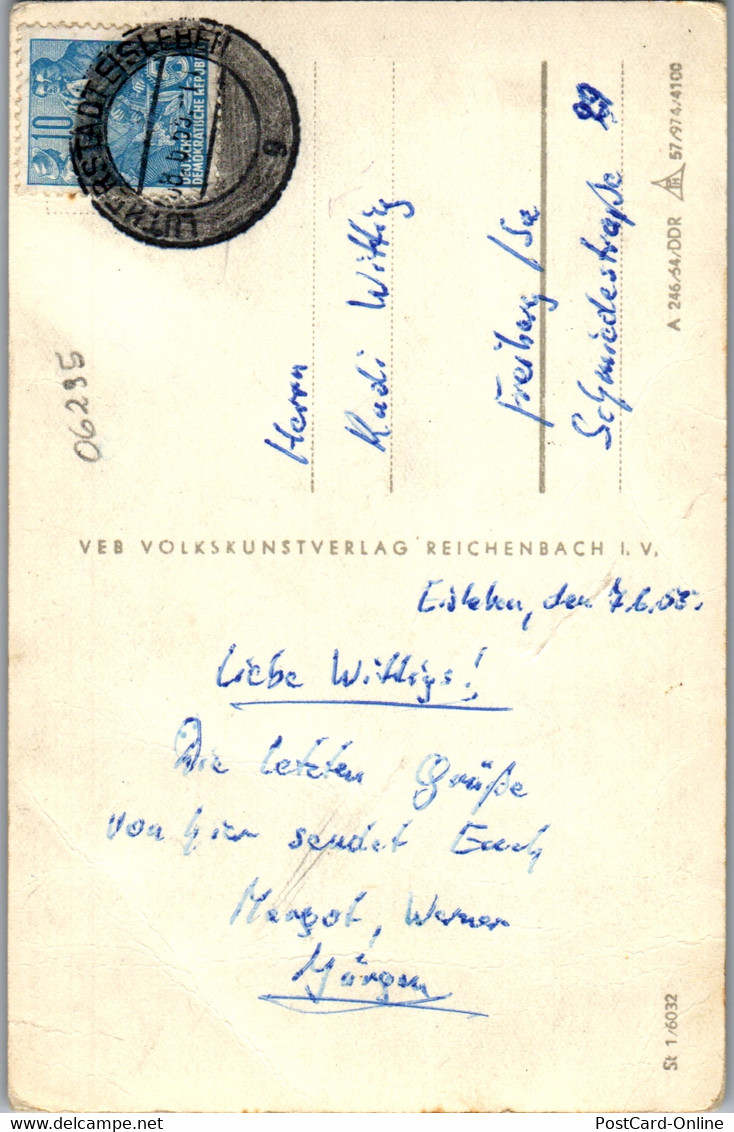 Eisleben, den 7.6.55.
Liebe Wittigs!
Die letzten Grüße
von hier sendet Euch
Margot, Werner
Jürgen
VEB VOLKSKUNSTVERLAG REICHENBACH I. V.
Herrn
Rudi Wittig
Freiberg /Sa
Schmiedestraße
10
DEUTSCHE
DEMOKRATISCHE REPUBLIK
LUTHERSTADT EISLEBEN
g
06295
A 246/54/DDR 57/974/4100
St 1/6032
PostCard-Online